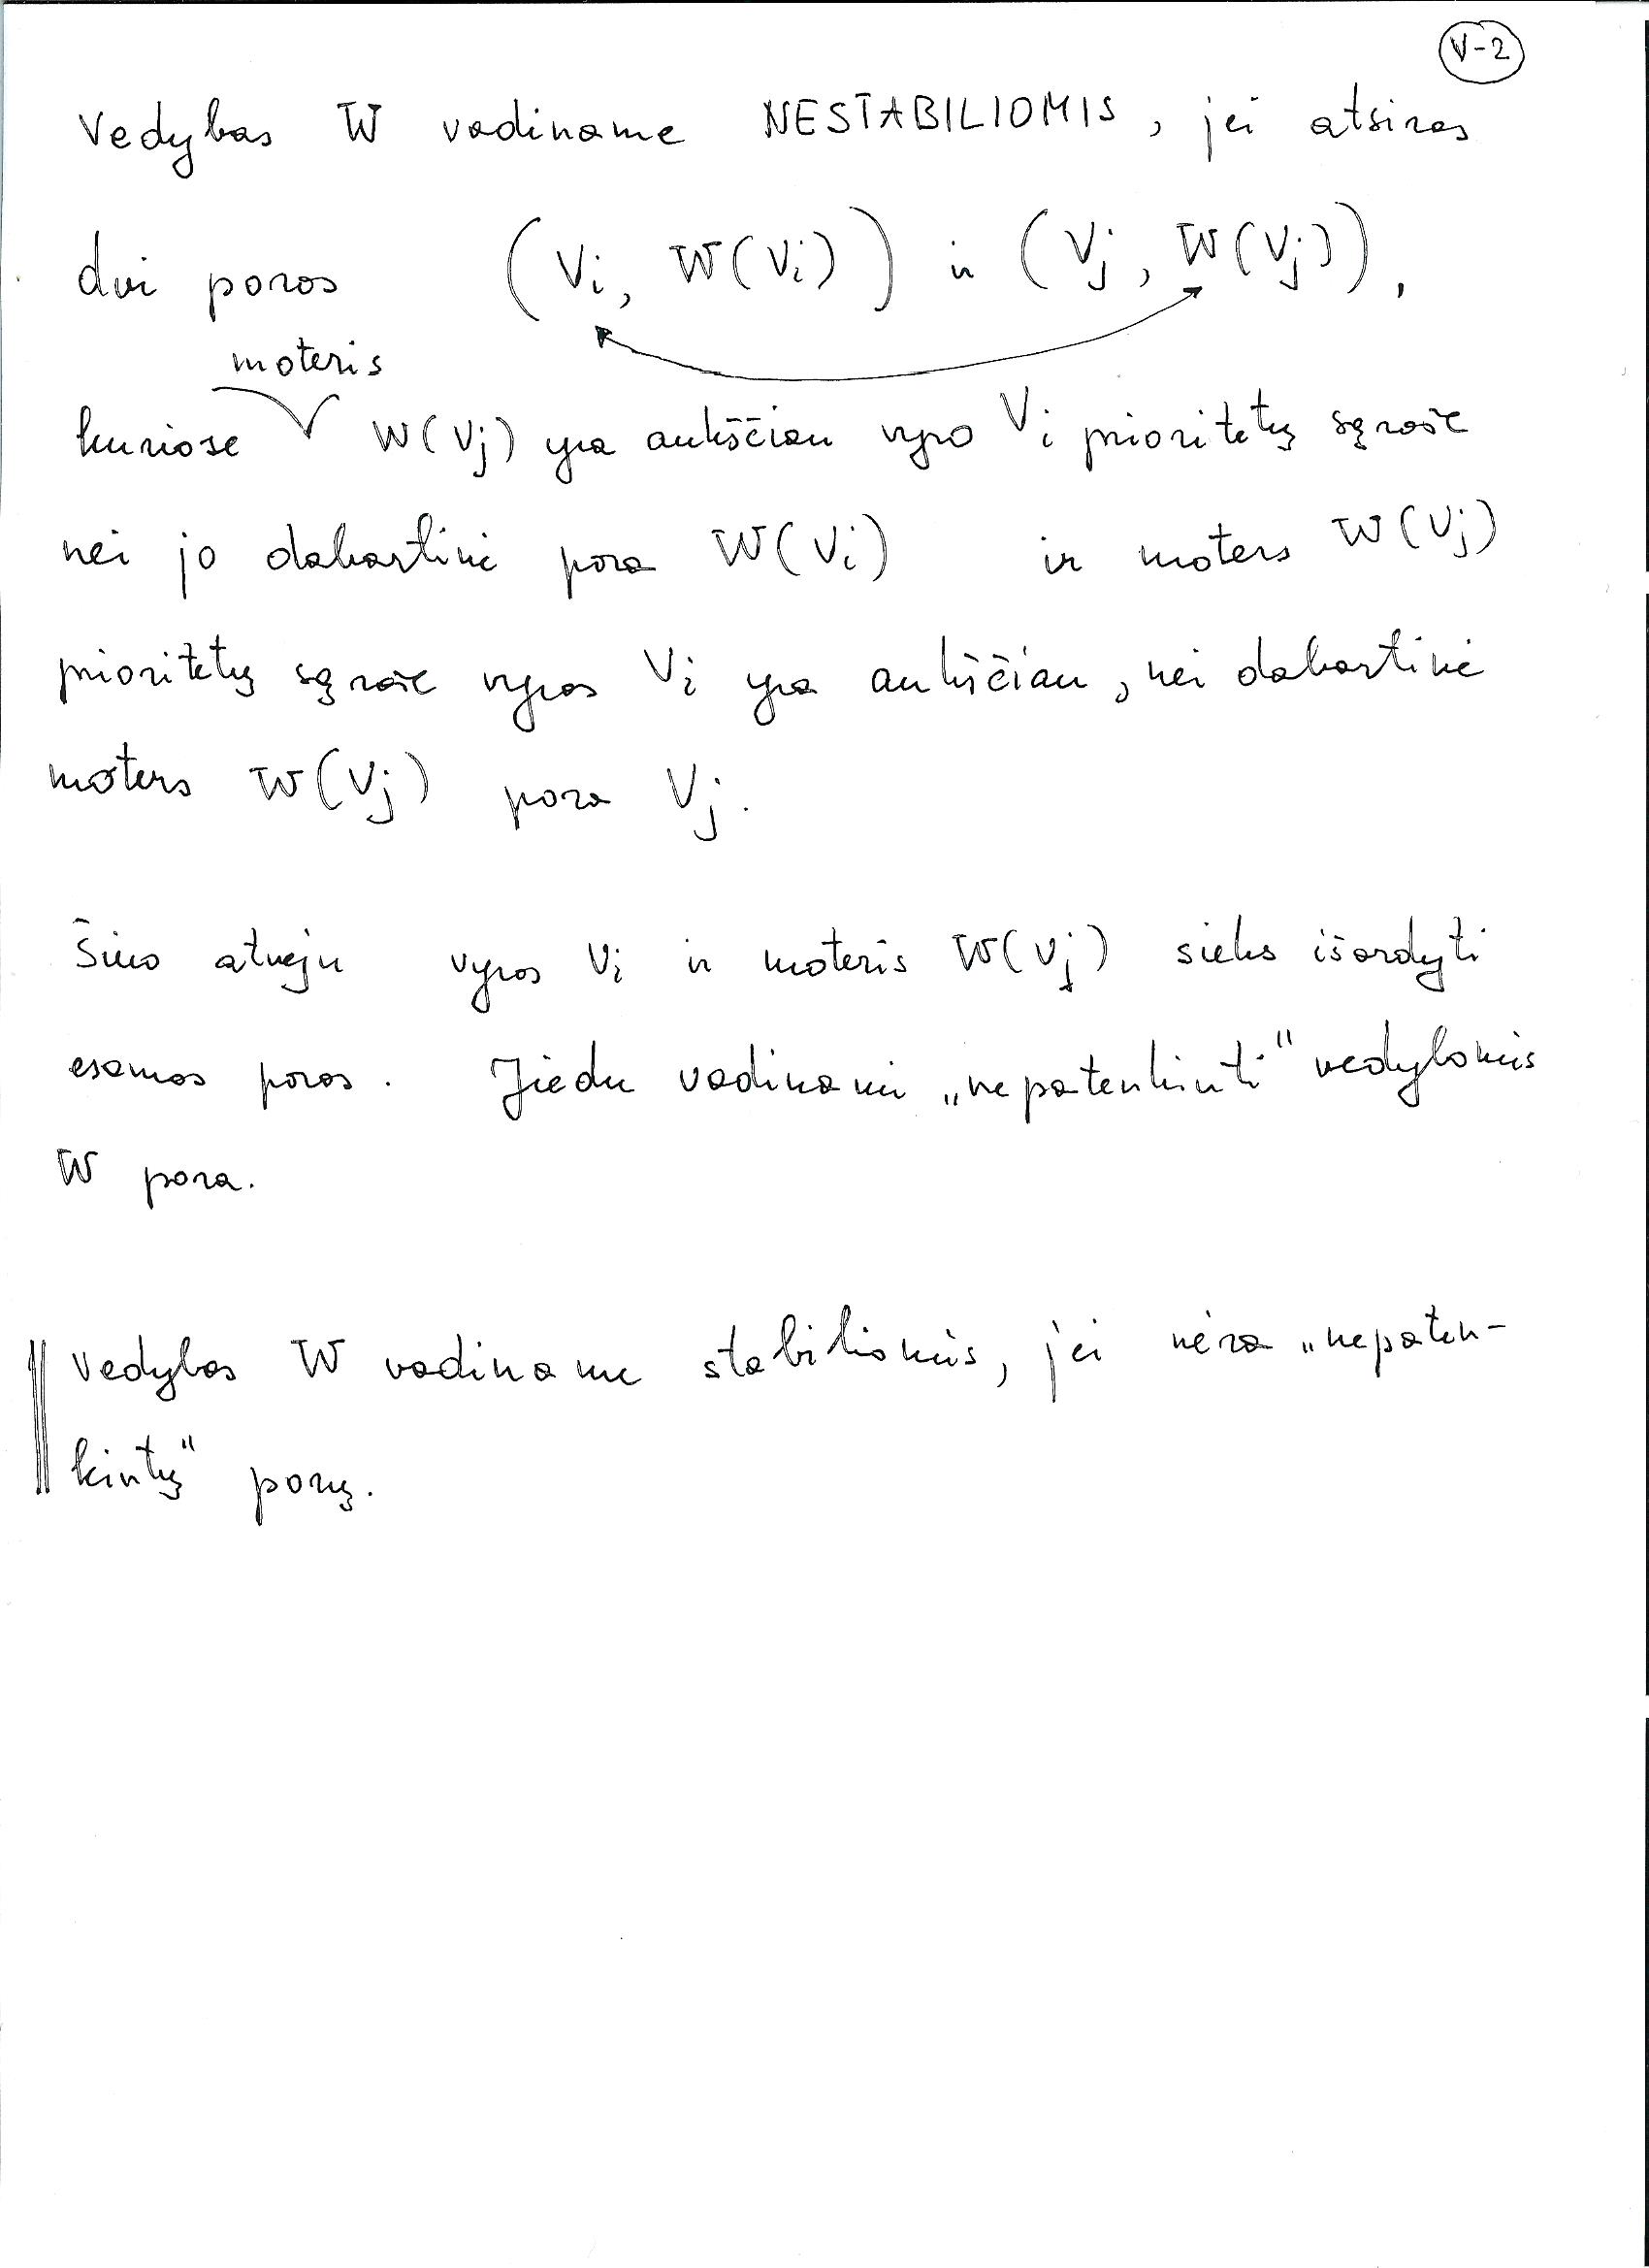 V-2
Vedybas W vadiname NESTABILIOMIS, jei atsiras
dvi poros (Vi, W(Vi)) ir (Vj, W(Vj)),
moteris
kuriose W(Vj) yra aukščiau vyro Vi prioritetų sąraše
nei jo dabartinė pora W(Vi) ir moters W(Vj)
prioritetų sąraše vyras Vi yra aukščiau, nei dabartinė
moters W(Vj) pora Vj.
Šiuo atveju vyras Vi ir moteris W(Vj) sieks išardyti
esamas poras. Jiedu vadinami „nepatenkinti“ vedybomis
W pora.
Vedybas W vadiname stabiliomis, jei nėra „nepaten-
kintų“ porų.